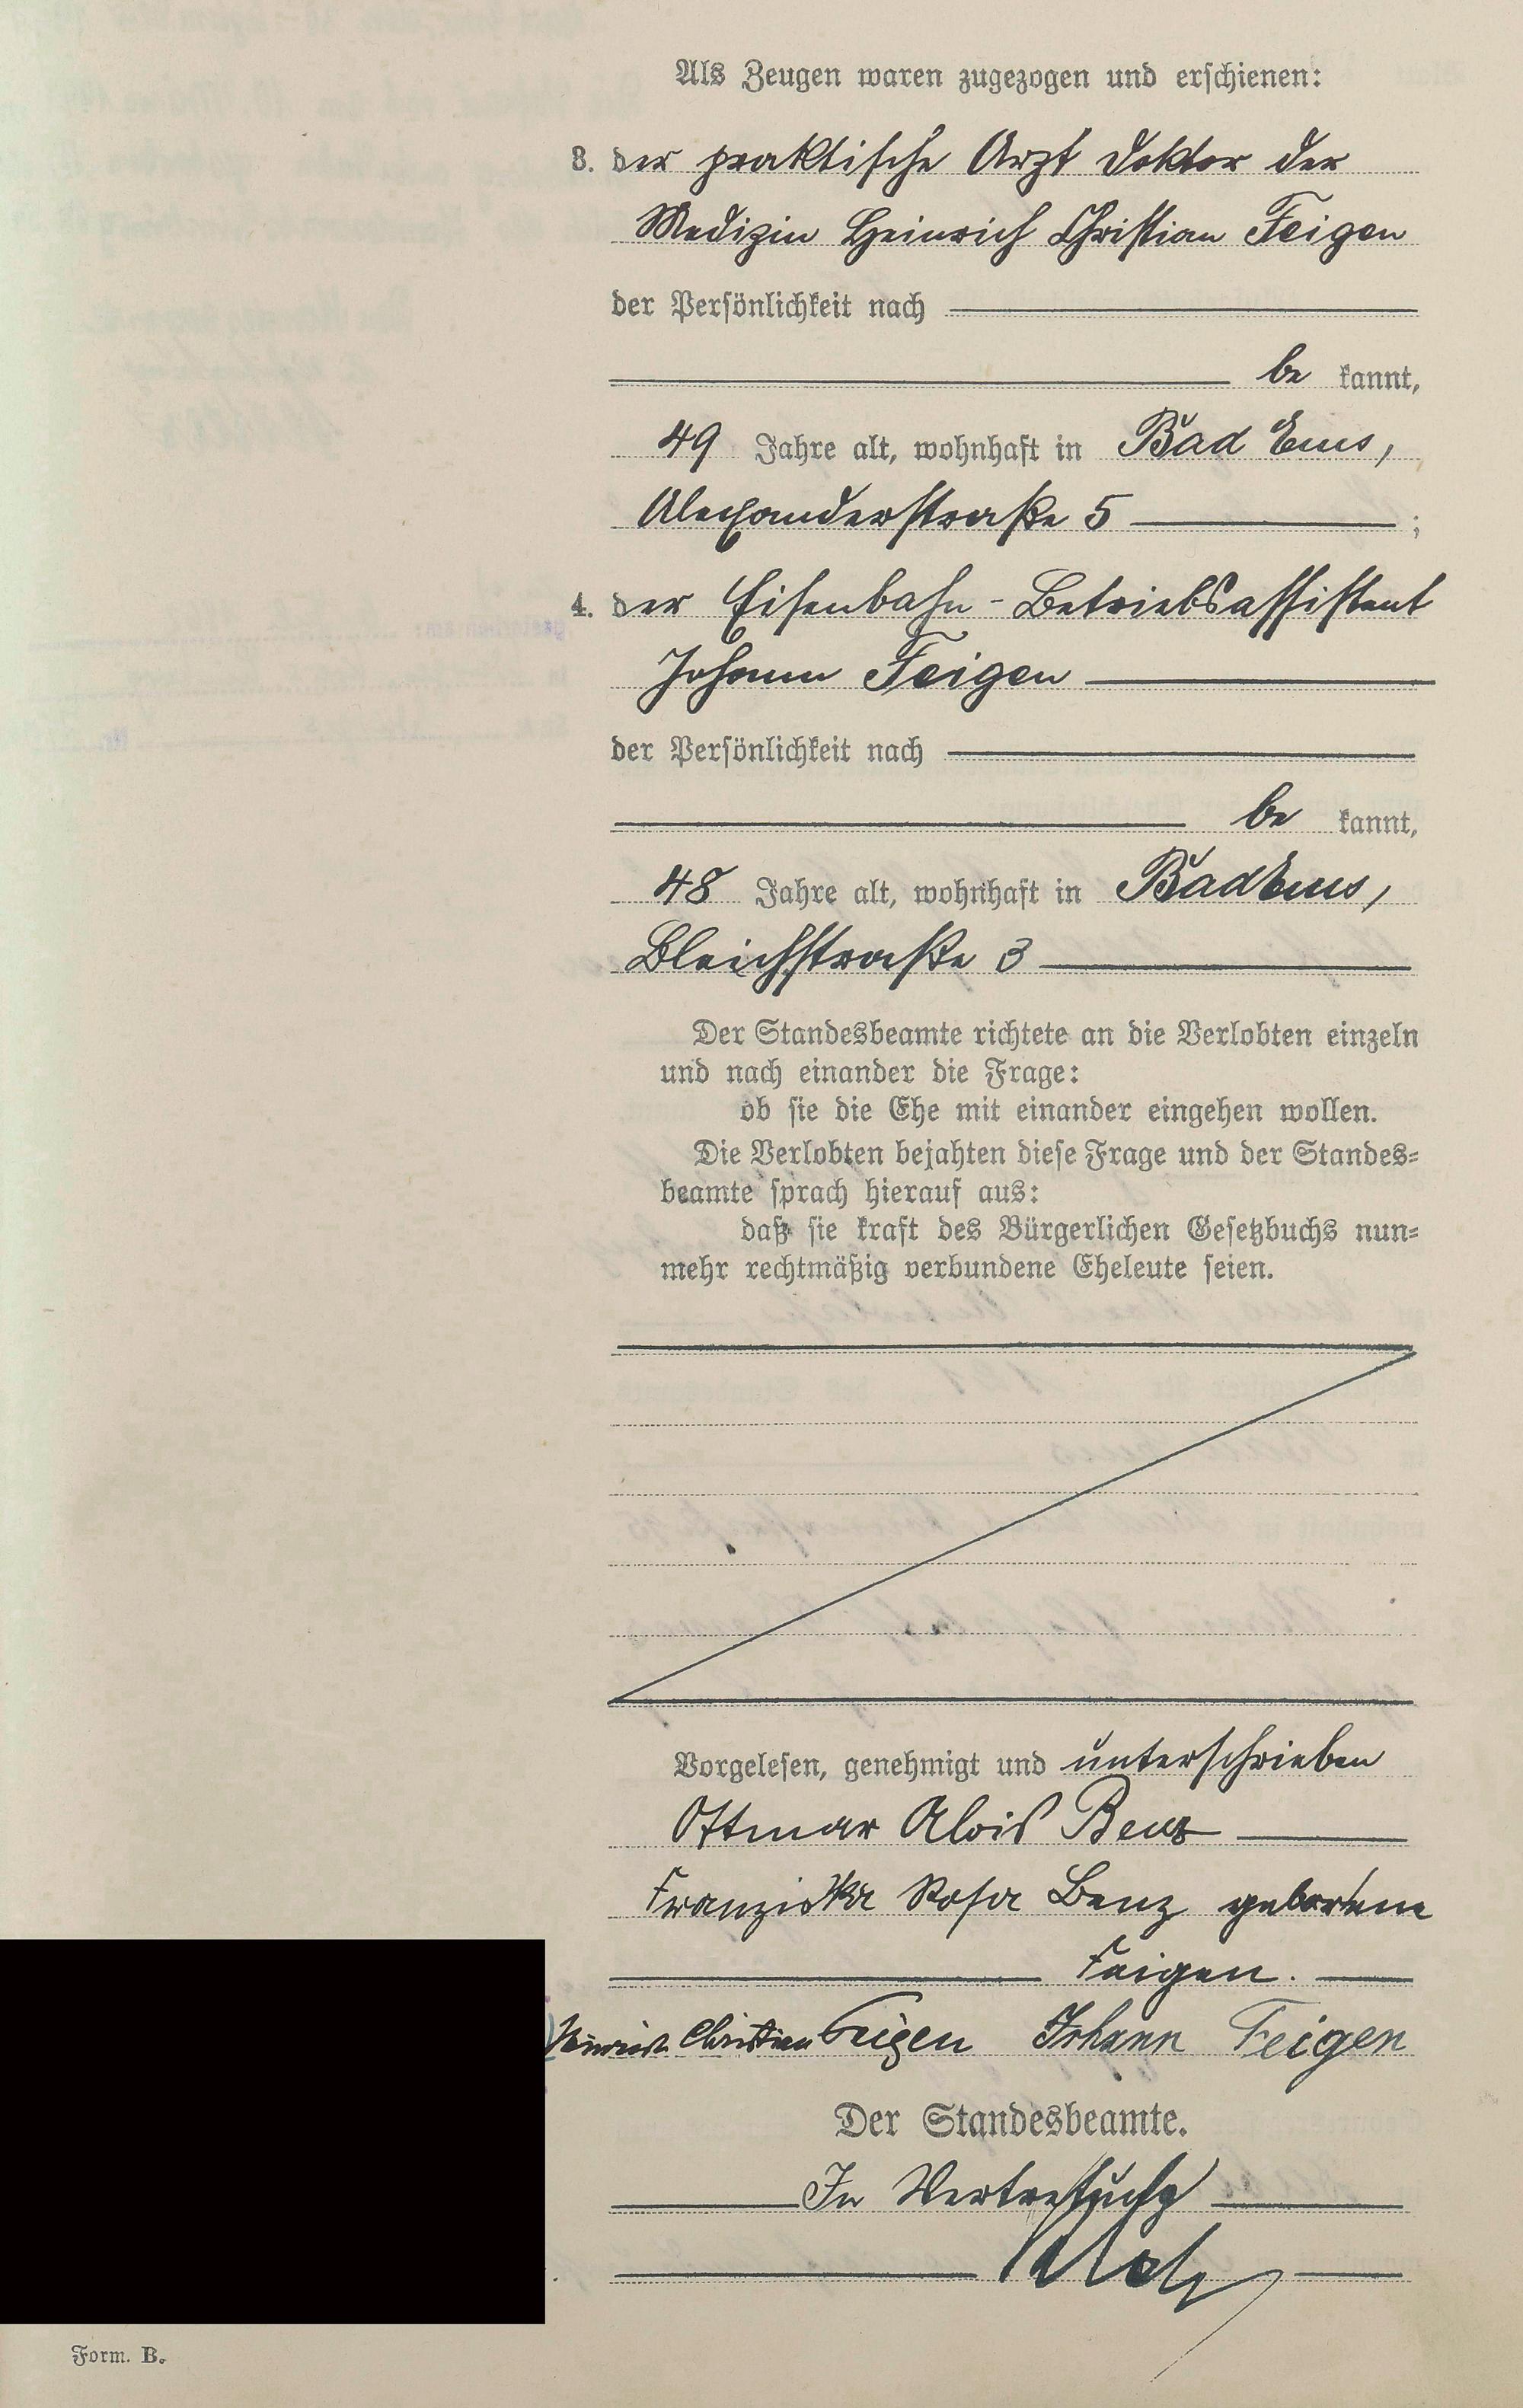 Als Zeugen waren zugezogen und erschienen:
3. der praktische Arzt Doktor der
Medizin Heinrich Christian Feigen
der Persönlichkeit nach
be kannt,
49 Jahre alt, wohnhaft in Bad Ems,
Alexanderstraße 5 ;
4. der Eisenbahn-Betriebsassistent
Johann Feigen
der Persönlichkeit nach
be kannt,
48 Jahre alt, wohnhaft in Bad Ems,
Bleichstraße 3
Der Standesbeamte richtete an die Verlobten einzeln
und nach einander die Frage:
ob sie die Ehe mit einander eingehen wollen.
Die Verlobten bejahten diese Frage und der Standes=
beamte sprach hierauf aus:
daß sie kraft des Bürgerlichen Gesetzbuchs nun=
mehr rechtmäßig verbundene Eheleute seien.
Vorgelesen, genehmigt und unterschrieben
Ottmar Alois Benz
Franziska Rosa Benz geborene
Feigen.
Heinrich Christian Feigen Johann Feigen
Der Standesbeamte.
In Vertretung
Form. B.